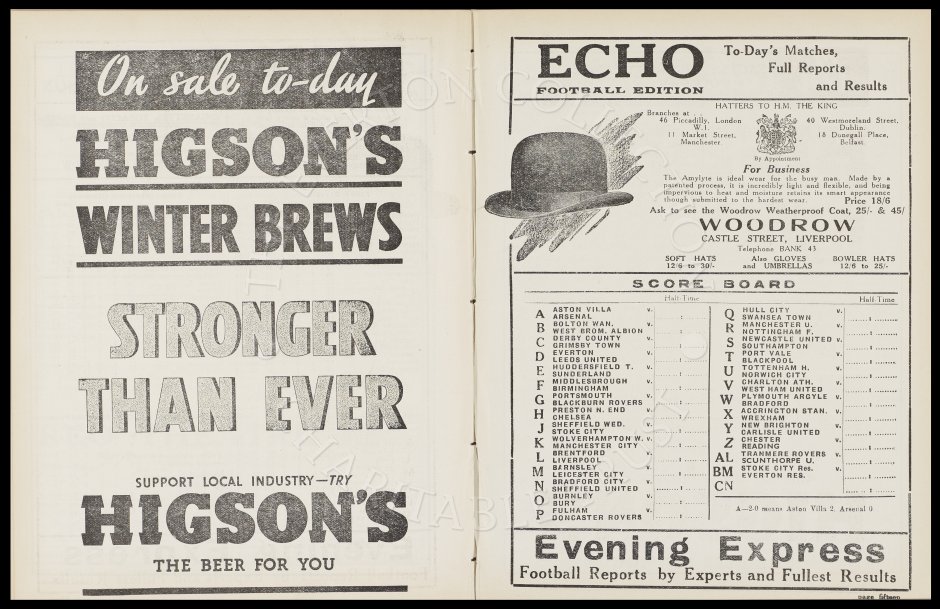 On sale to-day
HIGSON'S
WINTER BREWS
STRONGER
THAN EVER
SUPPORT LOCAL INDUSTRY—TRY
HIGSON'S
THE BEER FOR YOU
ECHO
FOOTBALL EDITION
To-Day's Matches,
Full Reports
and Results
HATTERS TO H.M. THE KING
Branches at
46 Piccadilly, London
W.1.
11 Market Street,
Manchester.
40 Westmoreland Street,
Dublin.
18 Donegall Place,
Belfast.
By Appointment
For Business
The Amylyte is ideal wear for the busy man. Made by a
patented process, it is incredibly light and flexible, and being
impervious to heat and moisture retains its smart appearance
though submitted to the hardest wear. Price 18/6
Ask to see the Woodrow Weatherproof Coat, 25/- & 45/
WOODROW
CASTLE STREET, LIVERPOOL
Telephone BANK 43
SOFT HATS
12/6 to 30/-
Also GLOVES
and UMBRELLAS
BOWLER HATS
12/6 to 25/-
SCORE BOARD
Half-Time
A ASTON VILLA v.
ARSENAL
B BOLTON WAN. v.
WEST BROM. ALBION
C DERBY COUNTY v.
GRIMSBY TOWN
D EVERTON v.
LEEDS UNITED
E HUDDERSFIELD T. v.
SUNDERLAND
F MIDDLESBROUGH v.
BIRMINGHAM
G PORTSMOUTH v.
BLACKBURN ROVERS
H PRESTON N. END v.
CHELSEA
J SHEFFIELD WED. v.
STOKE CITY
K WOLVERHAMPTON W. v.
MANCHESTER CITY
L BRENTFORD v.
LIVERPOOL
M BARNSLEY v.
LEICESTER CITY
N BRADFORD CITY v.
SHEFFIELD UNITED
O BURNLEY v.
BURY
P FULHAM v.
DONCASTER ROVERS
Half-Time
Q HULL CITY v.
SWANSEA TOWN
R MANCHESTER U. v.
NOTTINGHAM F.
S NEWCASTLE UNITED v.
SOUTHAMPTON
T PORT VALE v.
BLACKPOOL
U TOTTENHAM H. v.
NORWICH CITY
V CHARLTON ATH. v.
WEST HAM UNITED
W PLYMOUTH ARGYLE v.
BRADFORD
X ACCRINGTON STAN. v.
WREXHAM
Y NEW BRIGHTON v.
CARLISLE UNITED
Z CHESTER v.
READING
AL TRANMERE ROVERS v.
SCUNTHORPE U.
BM STOKE CITY Res. v.
EVERTON RES.
CN
A—2-0 means Aston Villa 2, Arsenal 0
Evening Express
Football Reports by Experts and Fullest Results
page fifteen